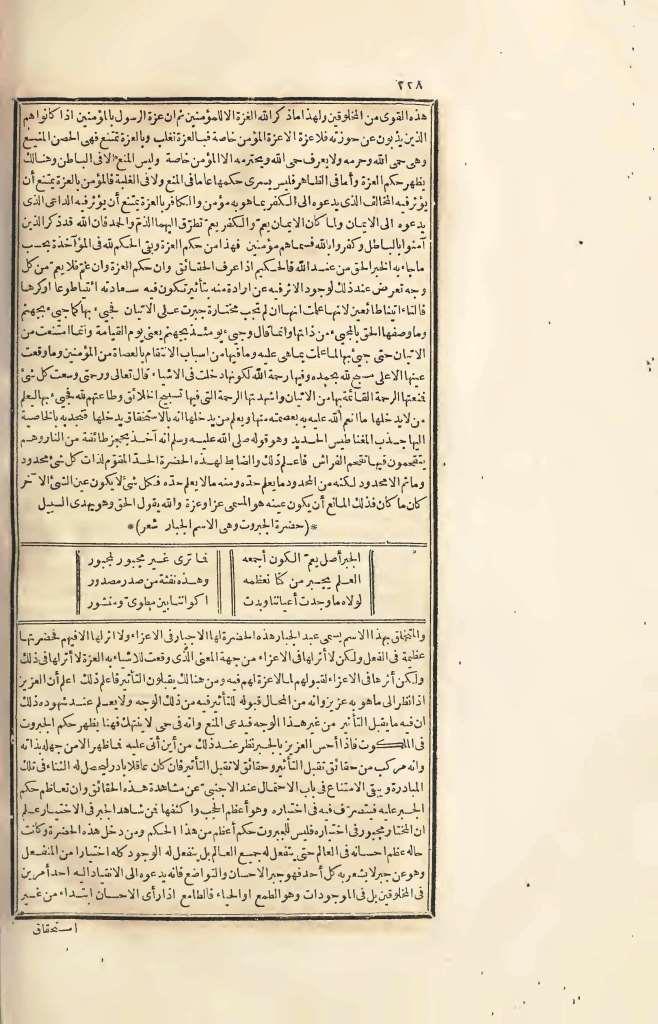 ٢٢٨
هذه القوى من المخلوقين ولهذا ما ذكر الله العزة الا للمؤمنين ثم ان عزة الرسول بالمؤمنين اذا كانوا هم
الذين يذبون عن حوزته فلا عزة الا عزة المؤمن خاصة فبالعزة تغلب وبالعزة يمتنع فهى الحصن المنيع
وهى حمى الله وحرمه ولا يعرف حمى الله ويحترمه الا المؤمن خاصة وليس المنع الا فى الباطن وهنالك
يظهر حكم العزة وأما فى الظاهر فليس يسرى حكمها عاما فى المنع ولا فى الغلبة فالمؤمن بالعزة يمتنع أن
يؤثر فيه المخالف الذى يدعوه الى الكفر بما هو به مؤمن والكافر بالعزة يمتنع أن يؤثر فيه الداعى الذى
يدعوه الى الايمان ولما كان الايمان يعم والكفر يعم تطرّق اليهما الذم والحمد فان الله قد ذكر الذين
آمنوا بالباطل وكفروا بالله فسماهم مؤمنين فهذا من حكم العزة وبقى الحكم لله فى المؤاخذة بحسب
ما جاء به الخبر الحق من عند الله فالحكيم اذا عرف الحقائق وان حكم العزة وان عمّ فلا يعم من كل
وجه تعرض عند ذلك لوجود الاثر فيه عن ارادة منه بتأثير تكون فيه سعادته ائتيا طوعا أو كرها
قالتا أتينا طائعين لانها علمت انها ان لم تجب مختارة جبرت على الاتيان فجىء بها كما جىء بجهنم
وما وصفها الحق بالمجىء من ذاتها وانما قال وجىء يومئذ بجهنم يعنى يوم القيامة وانما امتنعت من
الاتيان حتى جىء بها لما علمت بما هى عليه وما فيها من اسباب الانتقام بالعصاة من المؤمنين وما وقعت
عينها الا على مسبح لله بحمده وفيها رحمة الله لكونها دخلت فى الاشياء قال تعالى ورحمتى وسعت كل شئ
فمنعتها الرحمة القائمة بها من الاتيان واشهدتها الرحمة التى فيها تسبيح الخلائق وطاعتهم لله فجىء بها ليعلم
من لا يدخلها ما انعم الله عليه به بعصمته منها ويعلم من يدخلها انه بالاستحقاق يدخلها فتجذبه بالخاصية
اليها جذب المغناطيس الحديد وهو قوله صلى الله عليه وسلم انه آخذ بحجز طائفة من النار وهم
يتقحمون فيها تقحم الفراش فاعلم ذلك والضابط لهذه الحضرة الحد المقوّم لذات كل شئ محدود
وما ثم الا محدود لكنه من المحدود ما يعلم حدّه ومنه ما لا يعلم حدّه فكل شئ لا يكون عين الشئ الآخر
كان ما كان فذلك المانع أن يكون عينه هو المسمى عزا وعزة والله يقول الحق وهو يهدى السبيل
*(حضرة الجبروت وهى الاسم الجبار شعر)*
الجبر أصل يعم الكون أجمعه فما ترى غير مجبور لمجبور
العلم يجبر من كنا نعظمه وهذه نفثة من صدر مصدور
لولاه ما وجدت أعياننا وبدت اكواننا بين مطوى ومنشور
والمتخلق بهذا الاسم يسمى عبد الجبار هذه الحضرة لها الاجبار فى الاعزاء ولا اثر لها الا فيهم فحضرتها
عظيمة فى الفعل ولكن لا أثر لها فى الاعزاء من جهة المعنى الذى وقعت للاشياء به العزة لا أثر لها فى ذلك
ولكن أثرها فى الاعزاء لقبولهم لما لا عزة لهم فيه ومن هنالك يقبلون التأثير فاعلم ذلك اعلم أن العزيز
اذا نظر الى ما هو به عزيز وانه من المحال قبوله للتأثير فيه من ذلك الوجه ولا يعلم عند شهوده ذلك
ان فيه ما يقبل التأثير من غير هذا الوجه فيدعى المنع وانه فى حمى لا ينتهك فهنا يظهر حكم الجبروت
فى الملكوت فاذا أحس العزيز بالجبر نظر عند ذلك من أين أتى عليه فما ظهر الا من جهله بذاته
وانه مركب من حقائق تقبل التأثير وحقائق لا تقبل التأثير فان كان عاقلا بادر ليحصل له الثناء فى تلك
المبادرة ويبقى الامتناع فى باب الاحتمال عند الاجنبى عن مشاهدة هذه الحقائق وان تعاظم حكم
الجبر عليه فيتصرّف فيه فى اختياره وهو أعظم الحجب واكثفها فمن شاهد الجبر فى الاختيار علم
ان المختار مجبور فى اختياره فليس للجبروت حكم أعظم من هذا الحكم ومن دخل هذه الحضرة وكانت
حاله عظم احسانه فى العالم حتى ينفعل له جميع العالم بل ينفعل له الوجود كله اختيارا من المنفعل
وهو عن جبر لا يشعر به كل أحد فهو جبر الاحسان والتواضع فانه يدعوه الى الانقياد اليه احد أمرين
فى المخلوقين بل فى الموجودات وهو الطمع او الحياء فالطامع اذا رأى الاحسان ابتداء من غير
استحقاق